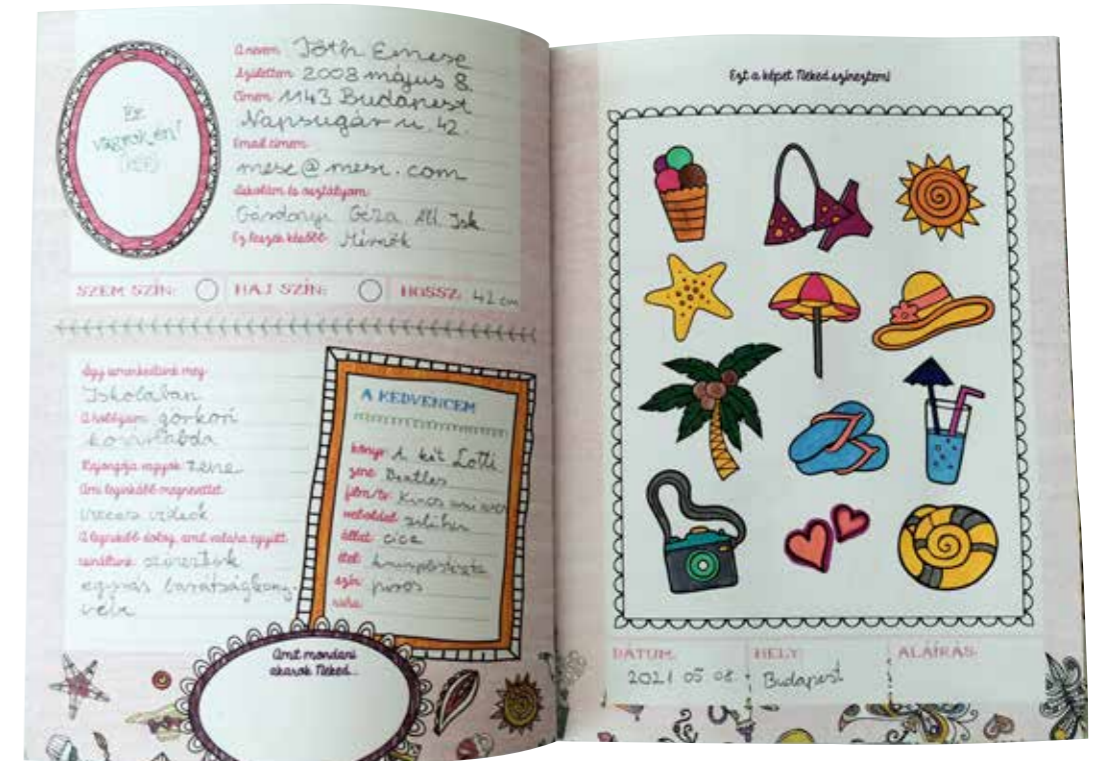 Ez
vagyok én!
(KÉP)
A nevem: Tóth Emese
Születtem: 2008 május 8.
Címem: 1143 Budapest
Napsugár u. 42.
Email címem:
mese@mese.com
Iskolám és osztályom:
Gárdonyi Géza Ált. Isk.
Ez leszek később: Mérnök
SZEM SZÍN: HAJ SZÍN: HOSSZ: 42 cm
Így ismerkedtünk meg:
Iskolában
A hobbyom: görkori
kosárlabda
Rajongója vagyok: zene
Ami leginkább megnevettet:
vicces videók
A legjobb dolog, amit valaha együtt
csináltunk:
egymás barátságköny-
vébe
A KEDVENCEM
könyv: A két Lotti
zene: Beatles
film/tv:
weboldal:
állat: cica
étel: krumplistészta
szín: piros
ruha:
Amit mondani
akarok Neked...
Ezt a képet Neked színeztem!
DÁTUM: HELY: ALÁÍRÁS:
2021 05 08. Budapest